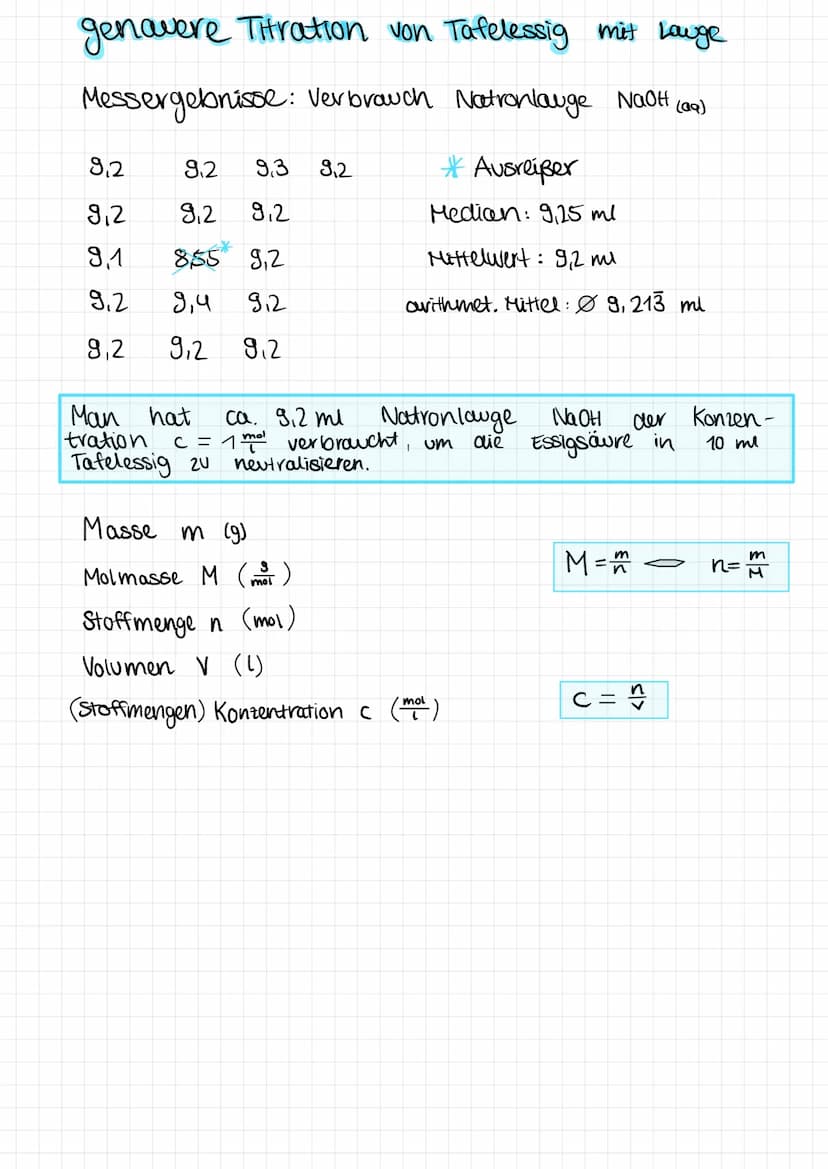 genauere Titration von Tafelessig mit Lauge
Messergebnisse: Verbrauch Natronlauge NaOH (aq)
9,2 9,2 9,3 9,2 * Ausreißer
9,2 9,2 9,2 Median: 9,25 ml
9,1 8,55* 9,2 Mittelwert: 9,2 ml
9,2 9,4 9,2 arithmet. Mittel: Ø 9,213̅ ml
9,2 9,2 9,2
Man hat ca. 9,2 ml Natronlauge NaOH der Konzen-
tration c = 1 mol/l verbraucht, um die Essigsäure in 10 ml
Tafelessig zu neutralisieren.
Masse m (g)
Molmasse M (g/mol) M = m/n ⇔ n = m/M
Stoffmenge n (mol)
Volumen V (l)
(Stoffmengen) Konzentration c (mol/l) c = n/V